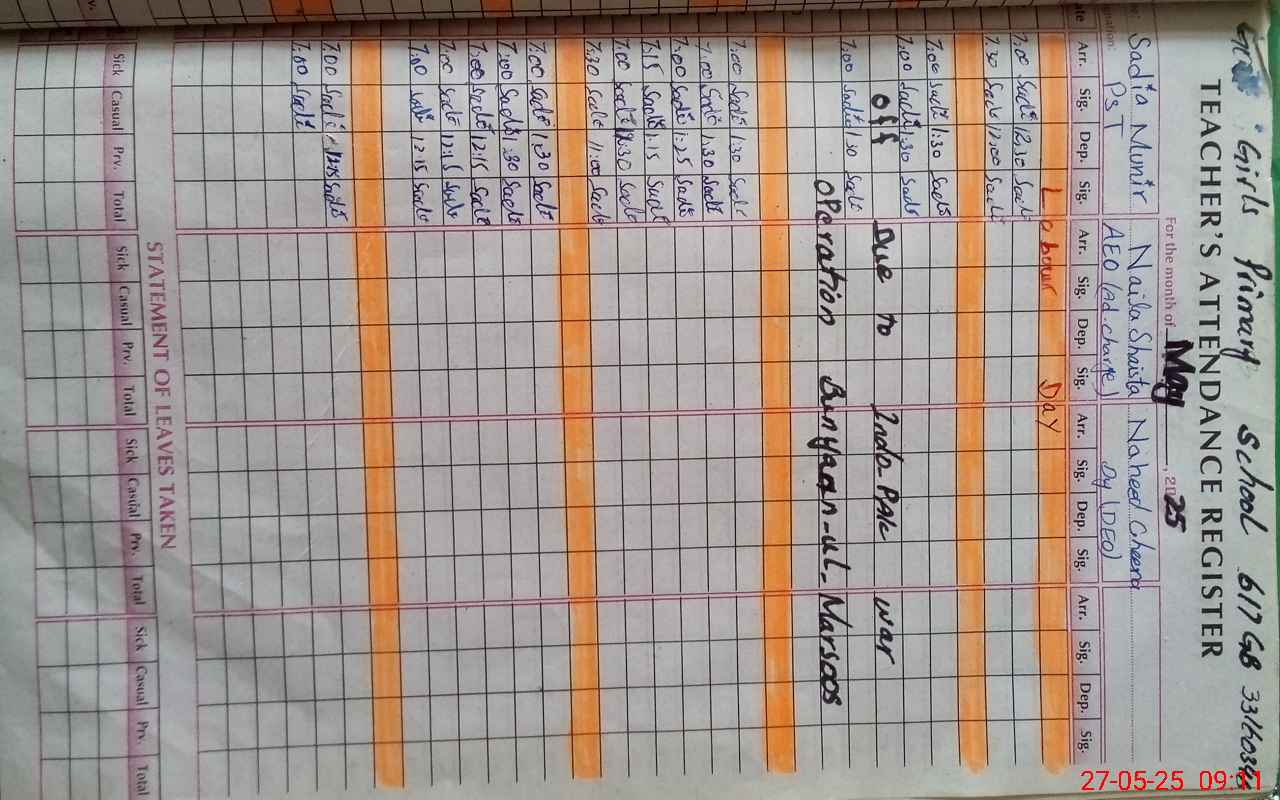 Girls Primary School 617 GB
TEACHER'S ATTENDANCE REGISTER
For the month of May, 2025
Sadia Munir Naila Shaista Naheed Cheema
PST AEO (Ad-charge) Dy (DEO)
Arr. Sig. Dep. Sig. Arr. Sig. Dep. Sig. Arr. Sig. Dep. Sig. Arr. Sig. Dep. Sig.
Labour Day
7:00 Sadi 12:30 Sadi
7:30 Sadi 12:00 Sadi
7:00 Sadi 1:30 Sadi
7:00 Sadi 1:30 Sadi
off Due to Indo-Pak war
7:00 Sadi 1:30 Sadi
Operation Bunyaan-ul-Narsoos
7:00 Sadi 1:30 Sadi
7:00 Sadi 1:30 Sadi
7:00 Sadi 1:25 Sadi
7:15 Sadi 1:15 Sadi
7:00 Sadi Sadi
7:30 Sadi 11:00 Sadi
7:00 Sadi 1:30 Sadi
7:00 Sadi 1:30 Sadi
7:00 Sadi 12:15 Sadi
7:00 Sadi 12:15 Sadi
7:00 Sadi 12:15 Sadi
7:00 Sadi 12:15 Sadi
7:00 Sadi
STATEMENT OF LEAVES TAKEN
Sick Casual Prv. Total Sick Casual Prv. Total Sick Casual Prv. Total Sick Casual Prv. Total
27-05-25 09:11